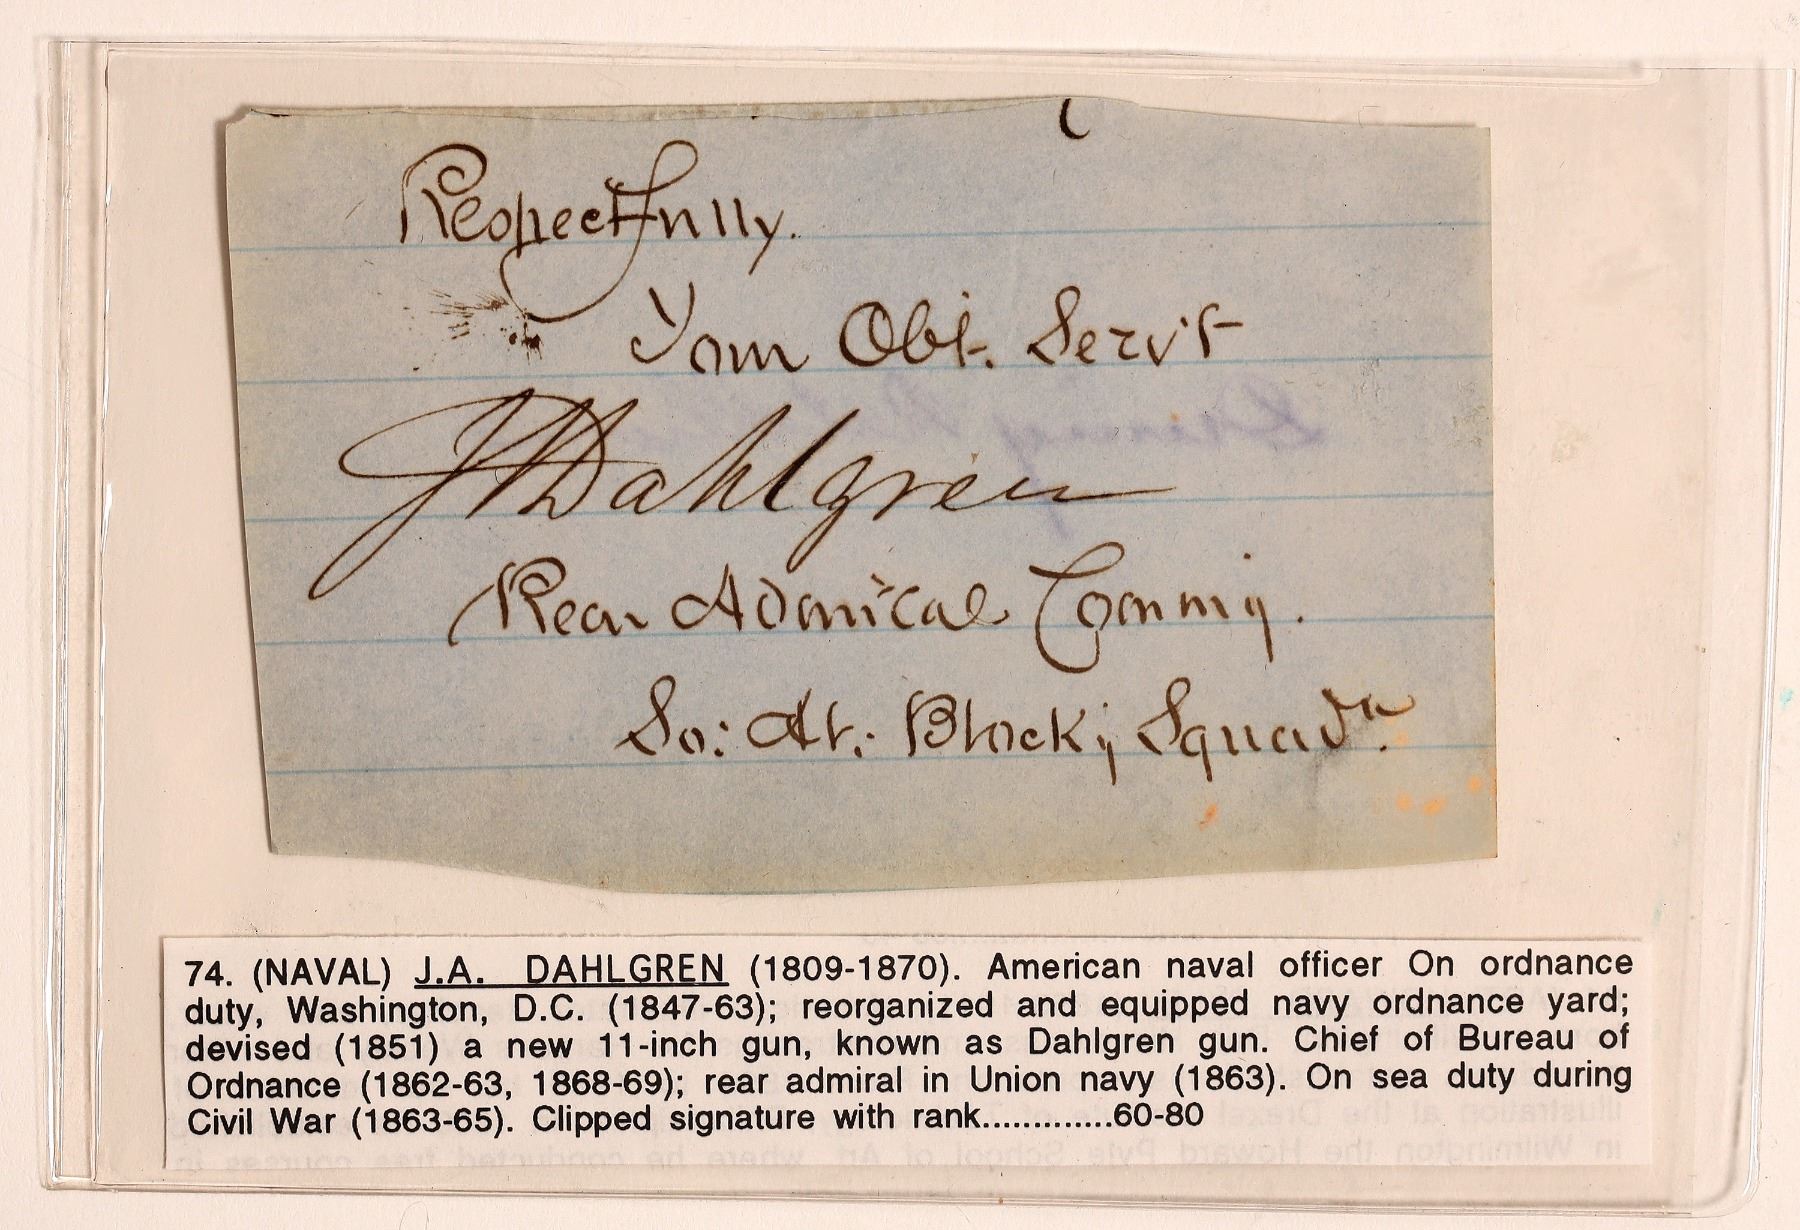 Respectfully.
Your Obt. Servt
JADahlgren
Rear Admiral Comm'g.
So: At. Block'g Squadn.
74. (NAVAL) J.A. DAHLGREN (1809-1870). American naval officer On ordnance
duty, Washington, D.C. (1847-63); reorganized and equipped navy ordnance yard;
devised (1851) a new 11-inch gun, known as Dahlgren gun. Chief of Bureau of
Ordnance (1862-63, 1868-69); rear admiral in Union navy (1863). On sea duty during
Civil War (1863-65). Clipped signature with rank.............60-80